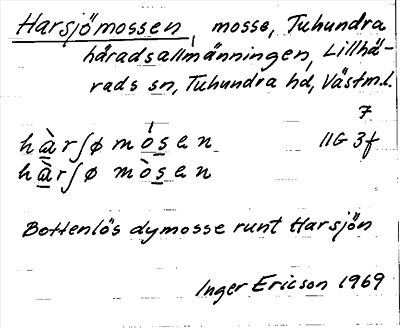 Harsjömossen, mosse, Tuhundra
häradsallmänningen, Lillhä-
rads sn, Tuhundra hd, Västm.l.
7
hàrʃø mósen 11G 3f
hàrʃø mòsen
Bottenlös dymosse runt Harsjön
Inger Ericson 1969